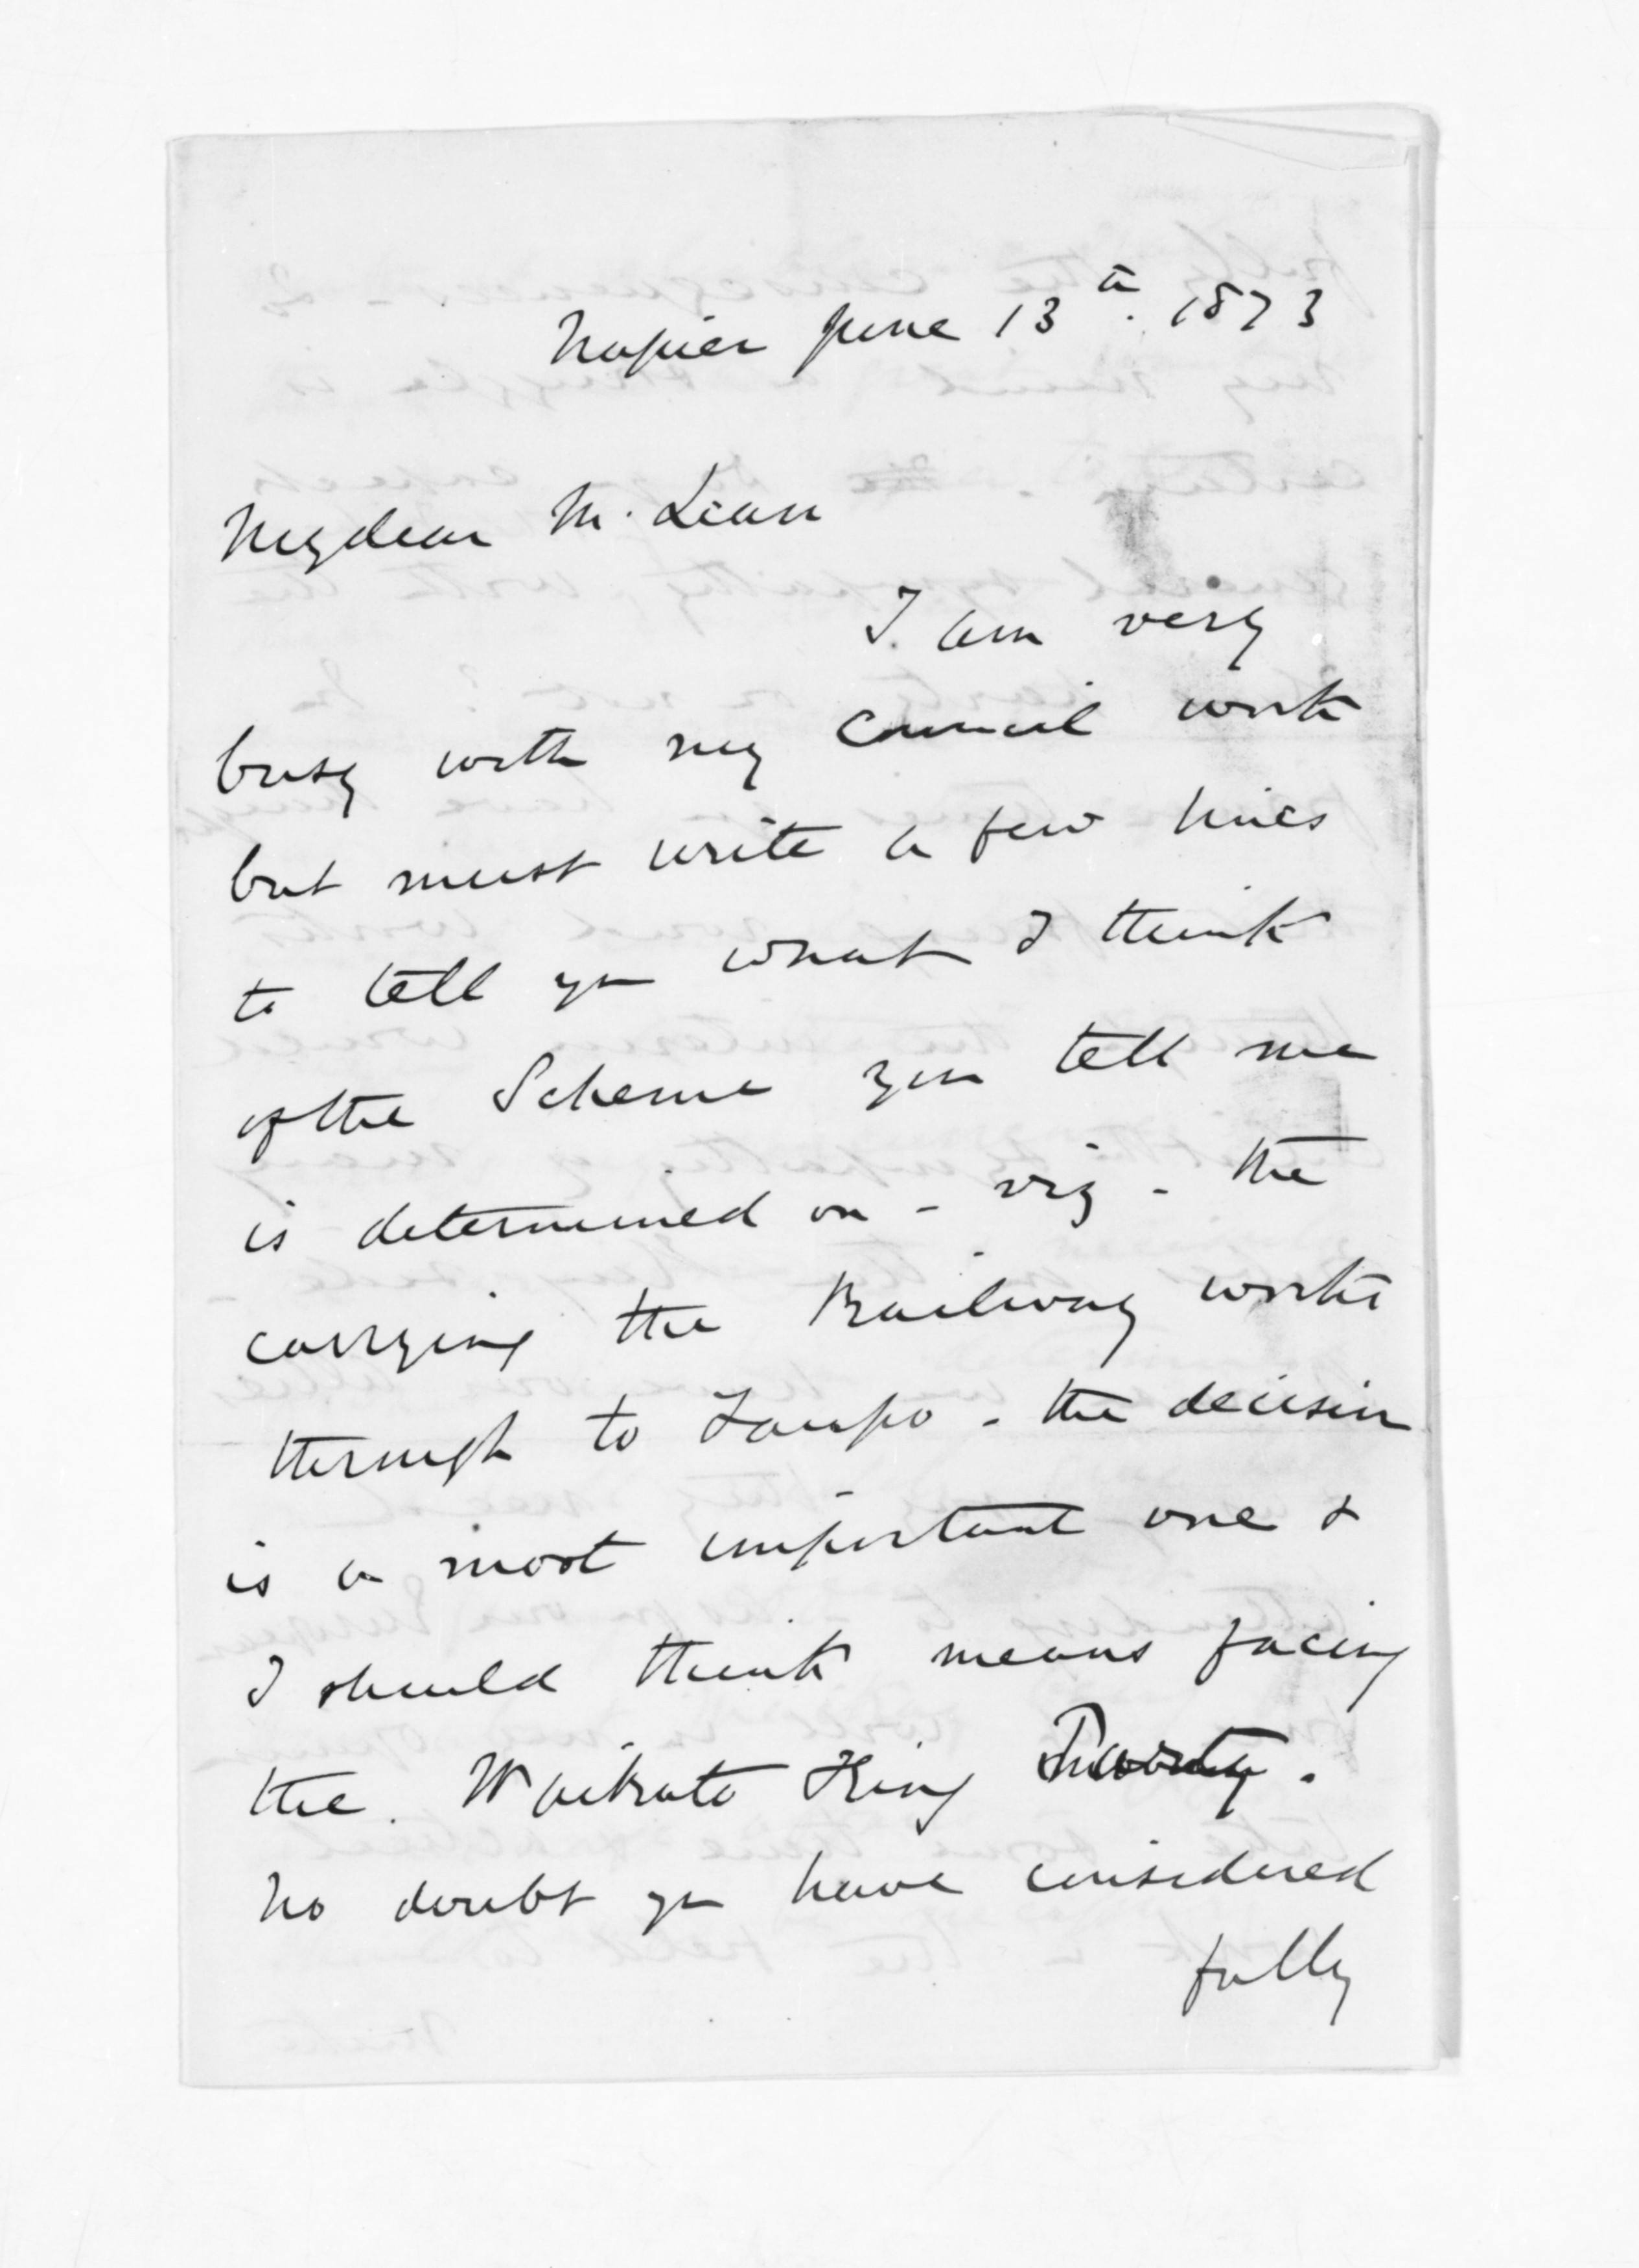 Napier June 13th. 1873
My dear McLean
I am very
busy with my Council work
but must write a few lines
to tell you what I think
of the Scheme you tell me
is determined on - viz - the
carrying the Railway works
through to Taupo - the decision
is a most important one &
I should think means facing
the Waikato King Party.
No doubt you have considered
fully